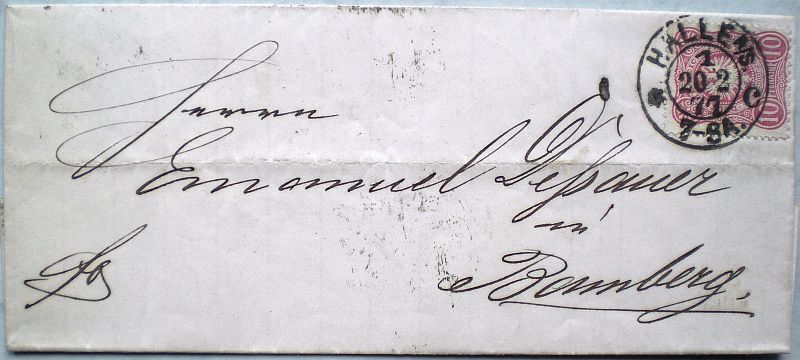 Herrn
Emanuel Deßauer
in
Bamberg.
HALLE A/S.
1
20 2
77
7-8A.
C
10
10